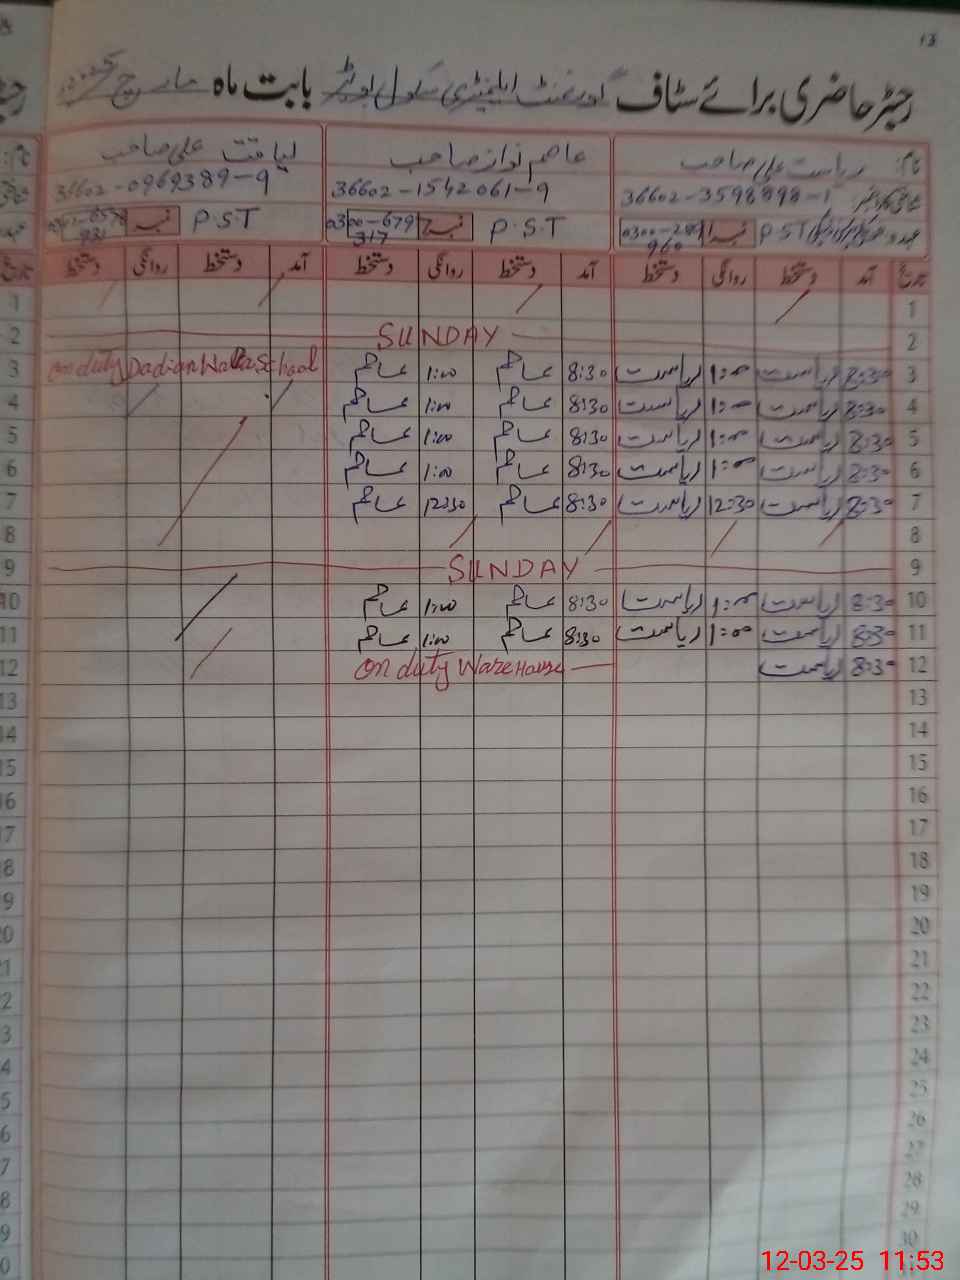 13
رجسٹر حاضری برائے سٹاف گورنمنٹ ایلیمنٹری سکول بابت ماہ مارچ
نام: ریاست علی صاحب
36602-3598898-1
P.S.T
نمبر
960
عاصم نواز صاحب
36602-1542061-9
P.S.T نمبر 0300-679
317
لیاقت علی صاحب
36602-0969389-9
P.S.T نمبر
931
تاریخ آمد دستخط روانگی دستخط آمد دستخط روانگی دستخط آمد دستخط روانگی دستخط تاریخ
1 1
2 SUNDAY 2
3 8:30 ریاست 1:00 ریاست 8:30 عاصم 1:00 عاصم on duty Dadian Wala School 3
4 8:30 ریاست 1:00 ریاست 8:30 عاصم 1:00 عاصم 4
5 8:30 ریاست 1:00 ریاست 8:30 عاصم 1:00 عاصم 5
6 8:30 ریاست 1:00 ریاست 8:30 عاصم 1:00 عاصم 6
7 8:30 ریاست 12:30 ریاست 8:30 عاصم 12:30 عاصم 7
8 8
9 SUNDAY 9
10 8:30 ریاست 1:00 ریاست 8:30 عاصم 1:00 عاصم 10
11 8:30 ریاست 1:00 ریاست 8:30 عاصم 1:00 عاصم 11
12 8:30 ریاست on duty WareHouse 12
13 13
14 14
15 15
16 16
17 17
18 18
19 19
20 20
21 21
22 22
23 23
24 24
25 25
26 26
27 27
28 28
29 29
30 30
12-03-25 11:53